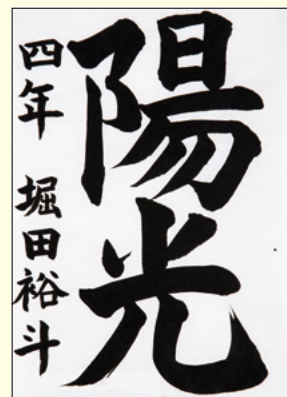 陽光
四年 堀田裕斗